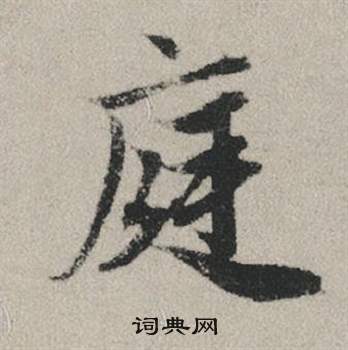 庭
词典网